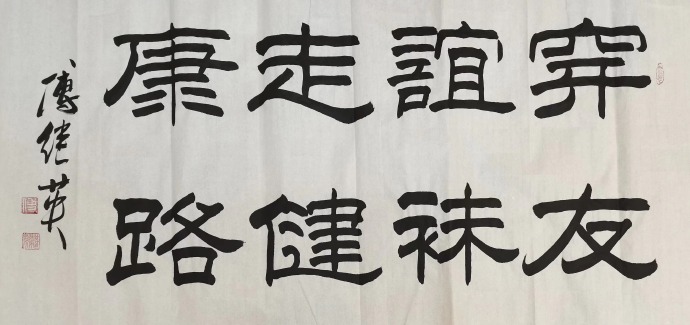 穿友
誼袜
走健
康路
傅继英